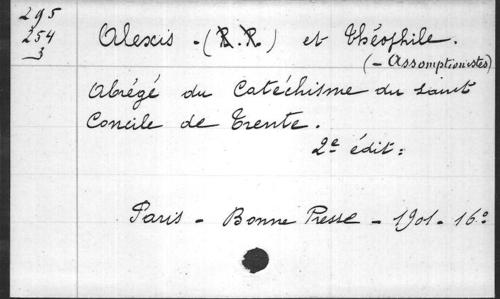 295
254
3
Alexis - (R.R.) et Théophile.
(- Assomptionistes)
Abrégé du Catéchisme du saint
Concile de Trente.
2e édit:
Paris - Bonne Presse - 1901 - 16°